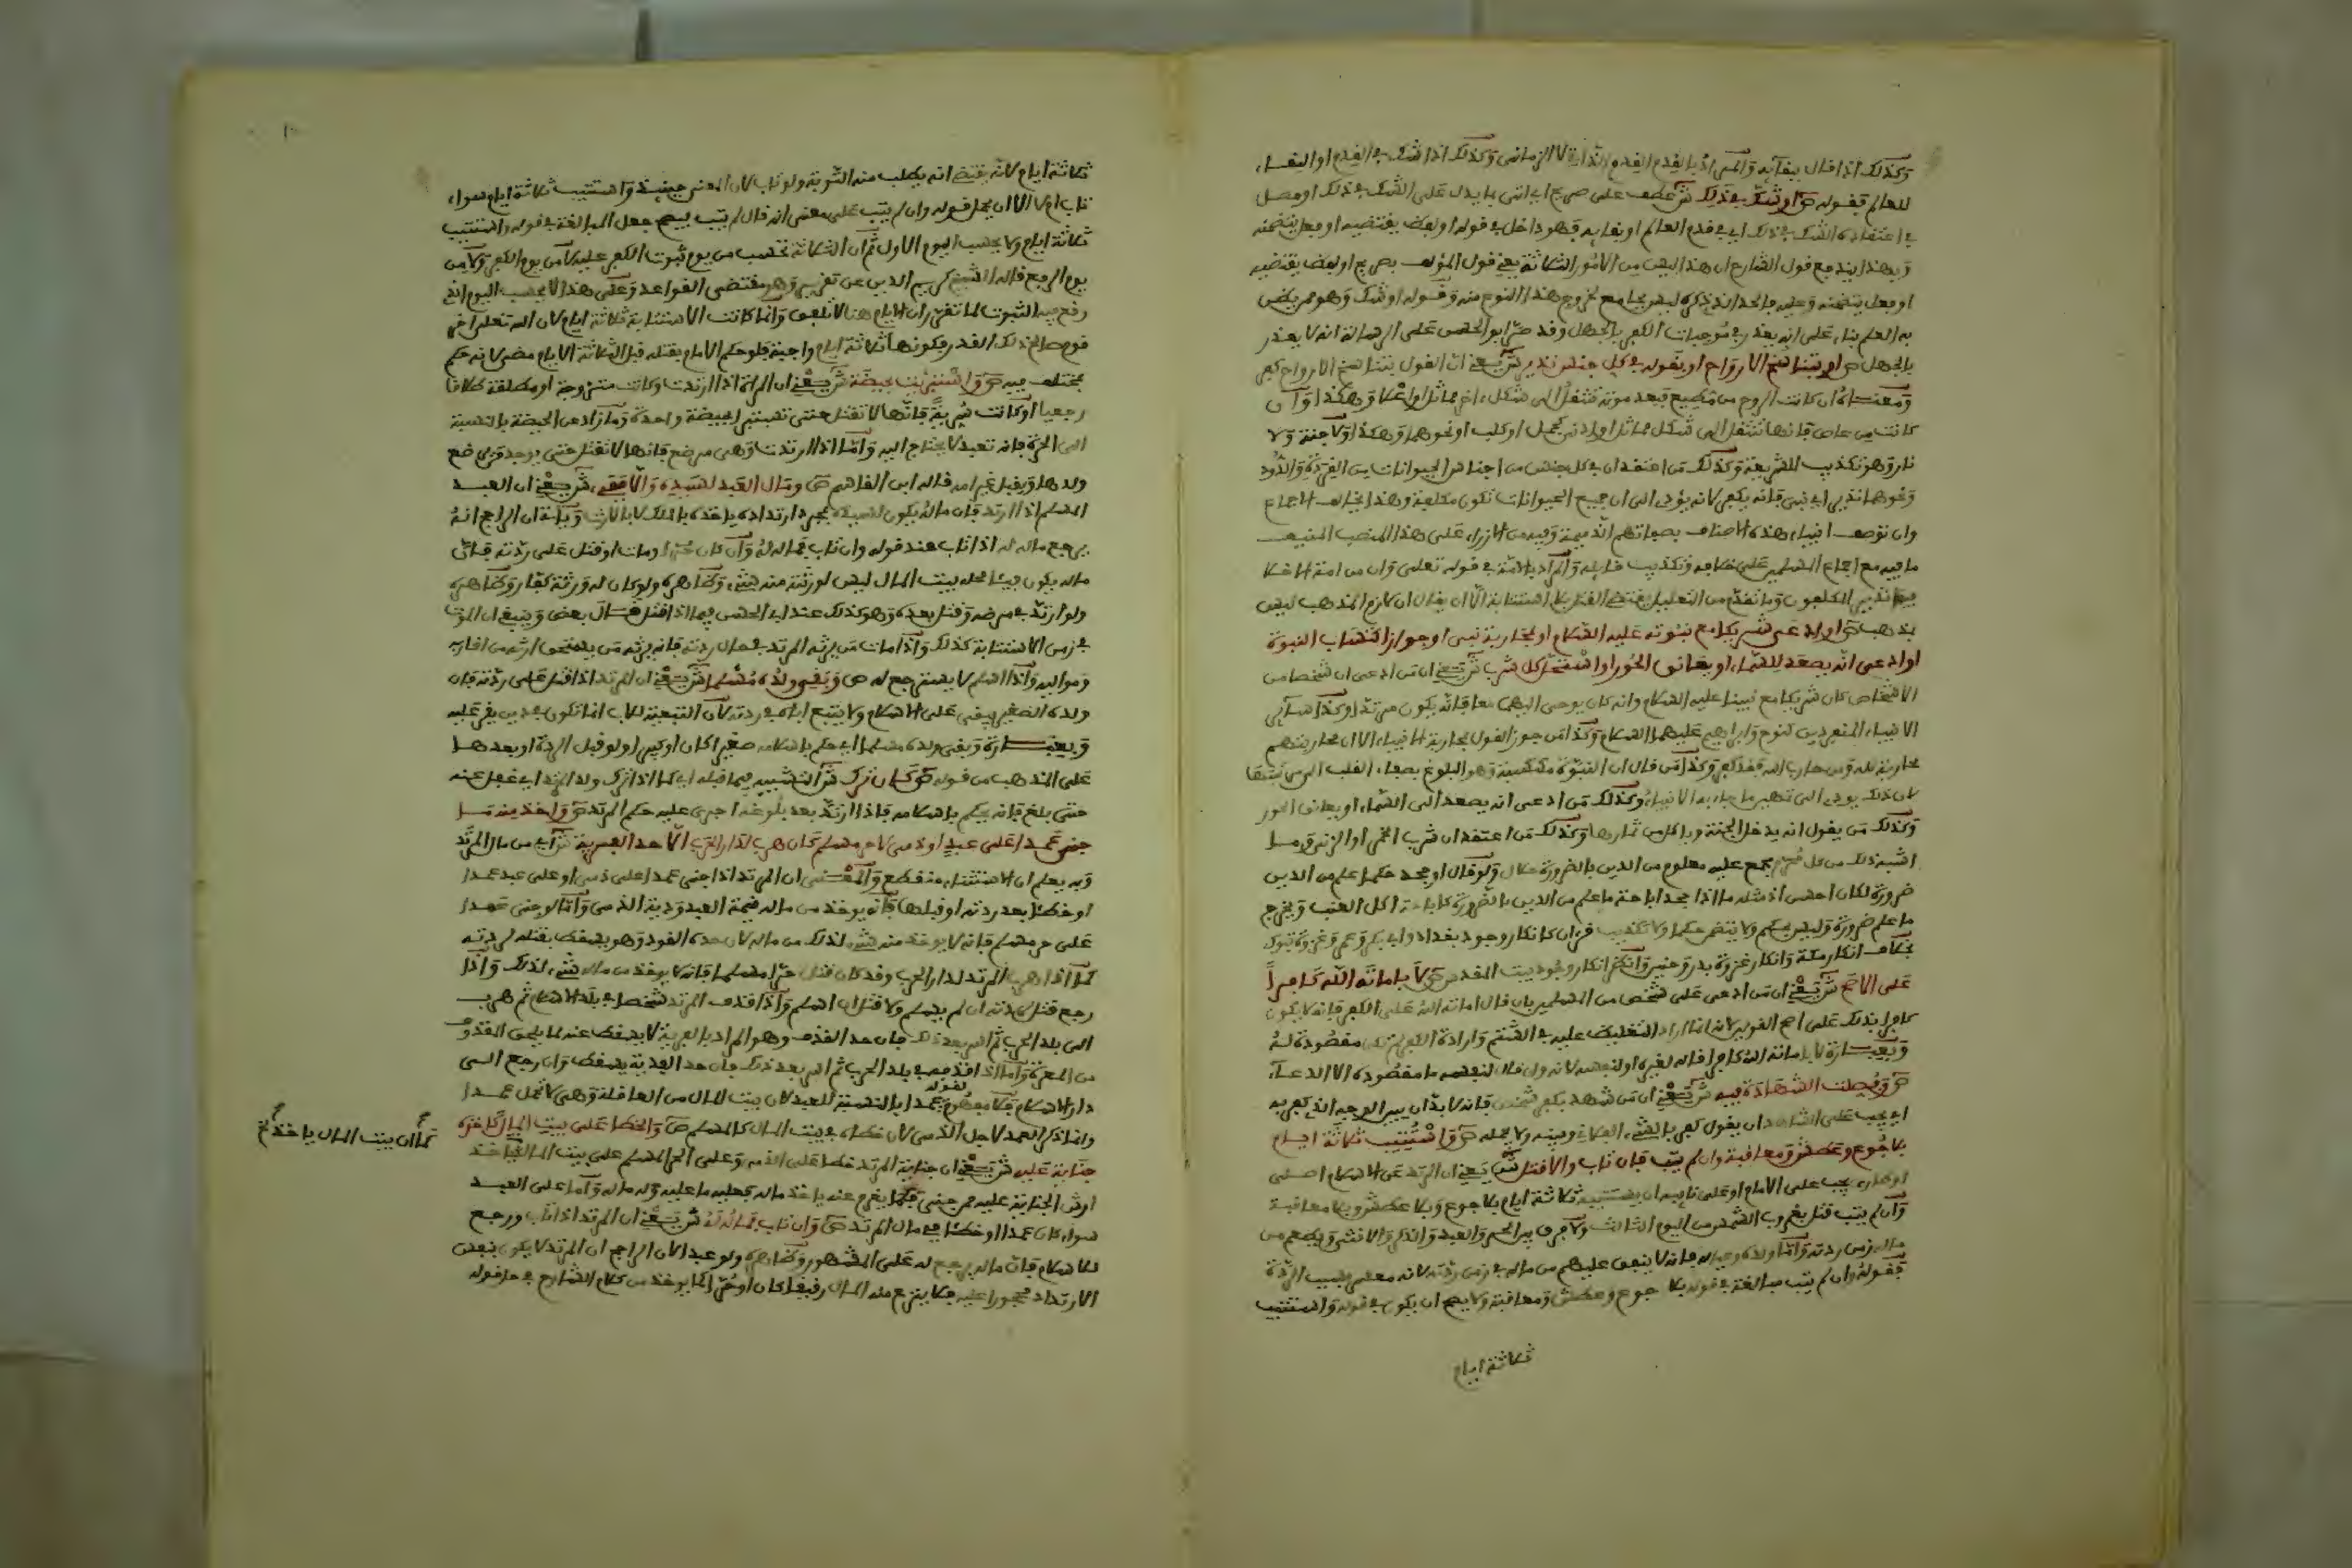 وكذلك اذا قال ببقائه والمراد بالقدم القدم الذاتي لا الزماني وكذلك اذا شك في القدم او البقاء
للعالم فقوله ص او شك في ذلك ش عطف على صريح اي اتى بما يدل على الشك في ذلك او حصل
في اعتقاده الشك في ذلك اي في قدم العالم او بقائه فهو داخل في قوله او لفظ يقتضيه او فعل يتضمنه
وبهذا يندفع قول الشارح ان هذا ليس من الامور الثلاثة يعني قول المؤلف بصريح او لفظ يقتضيه
او فعل يتضمنه وعليه فالحد الذي ذكره ليس بجامع لخروج هذا النوع منه وقوله او شك وهو ممن يظن
به العلم بناء على انه يعذر في موجبات الكفر بالجهل وقد صرح ابو الحسن على الرسالة انه لا يعذر
بالجهل ص او بتناسخ الارواح او بقوله في كل جنس نذير ش يعني ان القول بتناسخ الارواح كفر
ومعناه ان كانت الروح من مطيع فبعد موته تنتقل الى شكل اخر مماثل او اعلا وهكذا وان
كانت من عاص فانها تنتقل الى شكل مماثل او ادنى كجمل او كلب او نحوهما وهكذا ولا جنة ولا
نار وهو تكذيب للشريعة وكذلك من اعتقد ان في كل جنس من اجناس الحيوانات من القردة والدود
ونحوها نذير اي نبي فانه يكفر لانه يؤدي الى ان جميع الحيوانات تكون مكلفة وهذا يخالف الاجماع
وان توصف انبياء هذه الاصناف بصفاتهم الذميمة وفيه من الازراء على هذا المنصب المنيف
ما فيه مع اجماع المسلمين على خلافه وتكذيب قائله والمراد بالامة في قوله تعالى وان من امة الا خلا
فيها نذير المكلفون وما تقدم من التعليل يقتضي القتل بلا استتابة الا ان يقال ان لازم المذهب ليس
بمذهب ص او ادعى شركا مع نبوته عليه السلام او بمحاربة نبي او جوز اكتساب النبوة
او ادعى انه يصعد للسماء او يعانق الحور او استحل كل شرب ش يعني ان من ادعى ان شخصا من
الاشخاص كان شريكا مع نبينا عليه السلام وانه كان يوحى اليهما معا فانه يكون مرتدا وكذا سائر
الانبياء المنفردين كنوح وابراهيم عليهما السلام وكذا من جوز القول بمحاربة الانبياء الا ان محاربتهم
محاربة لله ومن حارب الله فقد كفر وكذا من قال ان النبوة مكتسبة وهو البلوغ بصفاء القلب الى مرتبتها
لان ذلك يودي الى توهين ما جاء به الانبياء وكذلك من ادعى انه يصعد الى السماء او يعانق الحور
وكذلك من يقول انه يدخل الجنة وياكل من ثمارها وكذلك من اعتقد ان شرب الخمر او الزنى وما
اشبه ذلك من كل محرم مجمع عليه معلوم من الدين بالضرورة حلال ولو قال او جحد حكما علم من الدين
ضرورة لكان احسن اذ مثله ما اذا جحد اباحة ما علم من الدين بالضرورة كاباحة اكل العنب ويخرج
ما علم ضرورة وليس بحكم ولا يتضمن حكما ولا تكذيب قران كانكار وجود بغداد وابي بكر وعمر وغزوة تبوك
بخلاف انكار مكة وانكار غزوة بدر وحنين وانظر انكار وجود بيت المقدس ص لا باماته الله كافرا
على الاصح ش يعني ان من ادعى على شخص من المسلمين بان قال اماته الله على الكفر فانه لا يكون
كافرا بذلك على اصح القولين لانه انما اراد التغليظ عليه في الشتم وارادة الكفر ليس مقصودة له
وبعبارة لا باماته الله كافرا قاله لغيره او لنفسه لانه وان قال لنفسه ما مقصوده الا الدعاء
ص وفصلت الشهادة فيه ش يعني ان من شهد بكفر شخص فانه لا بد ان يبين الوجه الذي كفر به
اي يجب على الشاهد ان يقول كفر بالشيء الفلاني ويبينه ولا يجمله ص واستتيب ثلاثة ايام
بلا جوع وعطش ومعاقبة وان لم يتب فان تاب والا قتل ش يعني ان المرتد عن الاسلام اصلي
او طار يجب على الامام او على نائبه ان يستتيبه ثلاثة ايام بلا جوع وبلا عطش وبلا معاقبة
وان لم يتب قتل بغروب الشمس من اليوم الثالث ولا فرق بين الحر والعبد والذكر والانثى ويطعم من
ماله زمن ردته واما ولده وعياله فانه لا ينفق عليهم من ماله في زمن ردته لانه معسر بسبب الردة
فقوله وان لم يتب مبالغة في قوله بلا جوع وعطش ومعاقبة ولا يصح ان يكون في قوله واستتيب
ثلاثة ايام
ثلاثة ايام لانه يقتضي انه يطلب منه التوبة ولو تاب لان المعنى حينئذ واستتيب ثلاثة ايام سواء
تاب ام لا الا ان يحمل قوله وان لم يتب على معنى انه قال لم يتب يصح جعل المبالغة في قوله واستتيب
ثلاثة ايام ولا يحسب اليوم الاول ثم ان الثلاثة تحسب من يوم ثبوت الكفر عليه لا من يوم الكفر ولا من
يوم الرفع قاله الشيخ كريم الدين عن تقرير وهو مقتضى القواعد وعلى هذا لا يحسب اليوم الذي
وقع فيه الثبوت لما تقرر ان الايام هنا لا تلفق وانما كانت الاستتابة ثلاثة ايام لان الله تعالى اخر
قوم صالح ذلك القدر فكونها ثلاثة ايام واجبة فلو حكم الامام بقتله قبل الثلاثة الايام مضى لانه حكم
بمختلف فيه ص واستبرئت بحيضة ش يعني ان المراة اذا ارتدت وكانت متزوجة او مطلقة طلاقا
رجعيا او كانت سرية فانها لا تقتل حتى تستبرا بحيضة واحدة وما زاد عن الحيضة بالنسبة
الى الحرة فانه تعبد لا يحتاج اليه واما اذا ارتدت وهي مرضع فانها لا تقتل حتى يوجد من يرضع
ولدها ويقبل غير امه قاله ابن القاسم ص ومال العبد لسيده والا ففيء ش يعني ان العبد
المسلم اذا ارتد فان ماله يكون لسيده بمجرد ارتداده ياخذه بالملك لا بالارث وياتي ان الراجح انه
يرجع ماله له اذا تاب عند قوله وان تاب فماله له وان كان حرا ومات او قتل على ردته فان
ماله يكون فيئا محله بيت المال ليس لورثته منه شيء وظاهره ولو كان له ورثة كفار وظاهره
ولو ارتد في مرضه وقتل بعده وهو كذلك عند ابي الحسن فيما اذا قتل قال بعض وينبغي ان الموت
في زمن الاستتابة كذلك واذا مات من يرثه المرتد في حال ردته فانه يرثه من يستحق ارثه من اقاربه
ومواليه واذا اسلم لا يسترجع له ص وبقي ولده مسلما ش يعني ان المرتد اذا قتل على ردته فان
ولده الصغير يبقى على الاسلام ولا يتبع اباه في ردته لان التبعية للاب انما تكون في دين يقر عليه
وبعبارة وبقي ولده مسلما اي حكم باسلامه صغيرا كان او كبيرا ولو قبل الردة او بعدها
على المذهب من قوله ص كان ترك ش التشبيه فيما قبله اي كما اذا ترك ولد المرتد اي غفل عنه
حتى بلغ فانه يحكم باسلامه فاذا ارتد بعد بلوغه اجري عليه حكم المرتد ص واخذ منه ما
جنى عمدا على عبد او ذمي لا حر مسلم كان هرب لدار الحرب الا حد الفرية ش اي من مال المرتد
وبه يعلم ان الاستثناء منقطع والمعنى ان المرتد اذا جنى عمدا على ذمي او على عبد عمدا
او خطئا بعد ردته او قبلها فانه يوخذ من ماله قيمة العبد ودية الذمي واما لو جنى عمدا
على حر مسلم فانه لا يوخذ منه شيء لذلك من ماله لان حده القود وهو يسقط بقتله لردته
كما اذا هرب المرتد لدار الحرب وقد كان قتل حرا مسلما فانه لا يوخذ من ماله شيء لذلك واذا
رجع قتل لردته ان لم يسلم ولا قتل ان اسلم واذا قذف المرتد شخصا في بلد الاسلام ثم هرب
الى بلد الحرب ثم اسر بعد ذلك فان حد القذف وهو المراد بالفرية لا يسقط عنه لما يلحق المقذوف
من المعرة واما اذا قذفه في بلد الحرب ثم اسر بعد ذلك فان حد الفرية يسقط وان رجع الى
دار الاسلام فلا مفهوم لقوله عمدا بالنسبة للعبد لان بيت المال من العاقلة وهي لا تحمل عمدا
وانما ذكر العمد لاجل الذمي لان خطاه في بيت المال كالمسلم ص والخطا على بيت المال كاخذه
جناية عليه ش يعني ان جناية المرتد خطا على الذمي وعلى الحر المسلم على بيت المال كما ياخذ
كما ان بيت المال ياخذ صح
ارش الجناية عليه ممن جنى فكما يغرم عنه ياخذ ماله فعليه ما عليه وله ماله واما على العبد
سواء كان عمدا او خطئا ففي مال المرتد ص وان تاب فماله له ش يعني ان المرتد اذا تاب ورجع
للاسلام فان ماله يرجع له على المشهور وظاهره ولو عبدا لان الراجح ان المرتد لا يكون بنفس
الارتداد محجورا عليه فلا ينزع منه المال رقيقا كان او حرا كما يوخذ من كلام الشارح في حل قوله